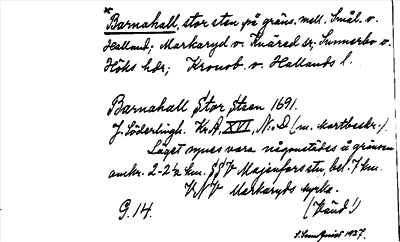 * Barnahall, stor sten på gräns. mell. Smål. o.
Halland; Markaryd o. Knäred sn; Sunnerbo o.
Höks hdr; Kronob. o. Hallands l.
Barnahall Stor Steen 1691.
J. Söderlingh. KrA. XVI, N:o D (m. kartbeskr.).
Läget synes vara någonstädes å gränsen
omkr. 2-2½ km. SSV Majenfors stn, bel. 7 km.
VNV Markaryds kyrka.
G. 14. (Känd!)
1937.